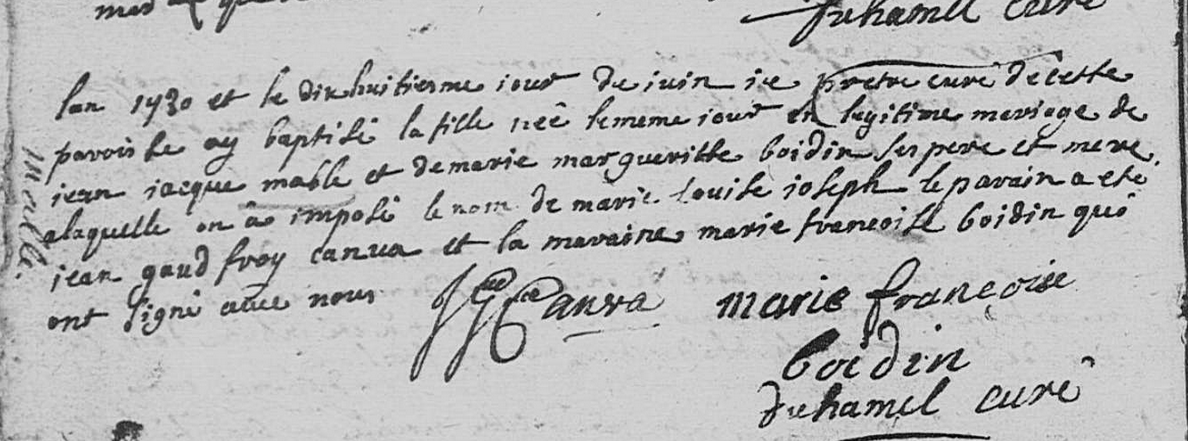 duhamel curé
lan 1730 et le dixhuitiesme jour de juin je pretre curé de cette
paroisse ay baptisé la fille neê le meme jour en legitime mariage de
jean jacque mable et de marie margueritte boidin ses pere et mere
alaquelle on â imposé le nom de marie louise joseph le parain a eté
jean gaud froy canva et la maraine marie francoise boidin qui
ont signé avec nous
Canva marie françoise
boidin
duhamel curé